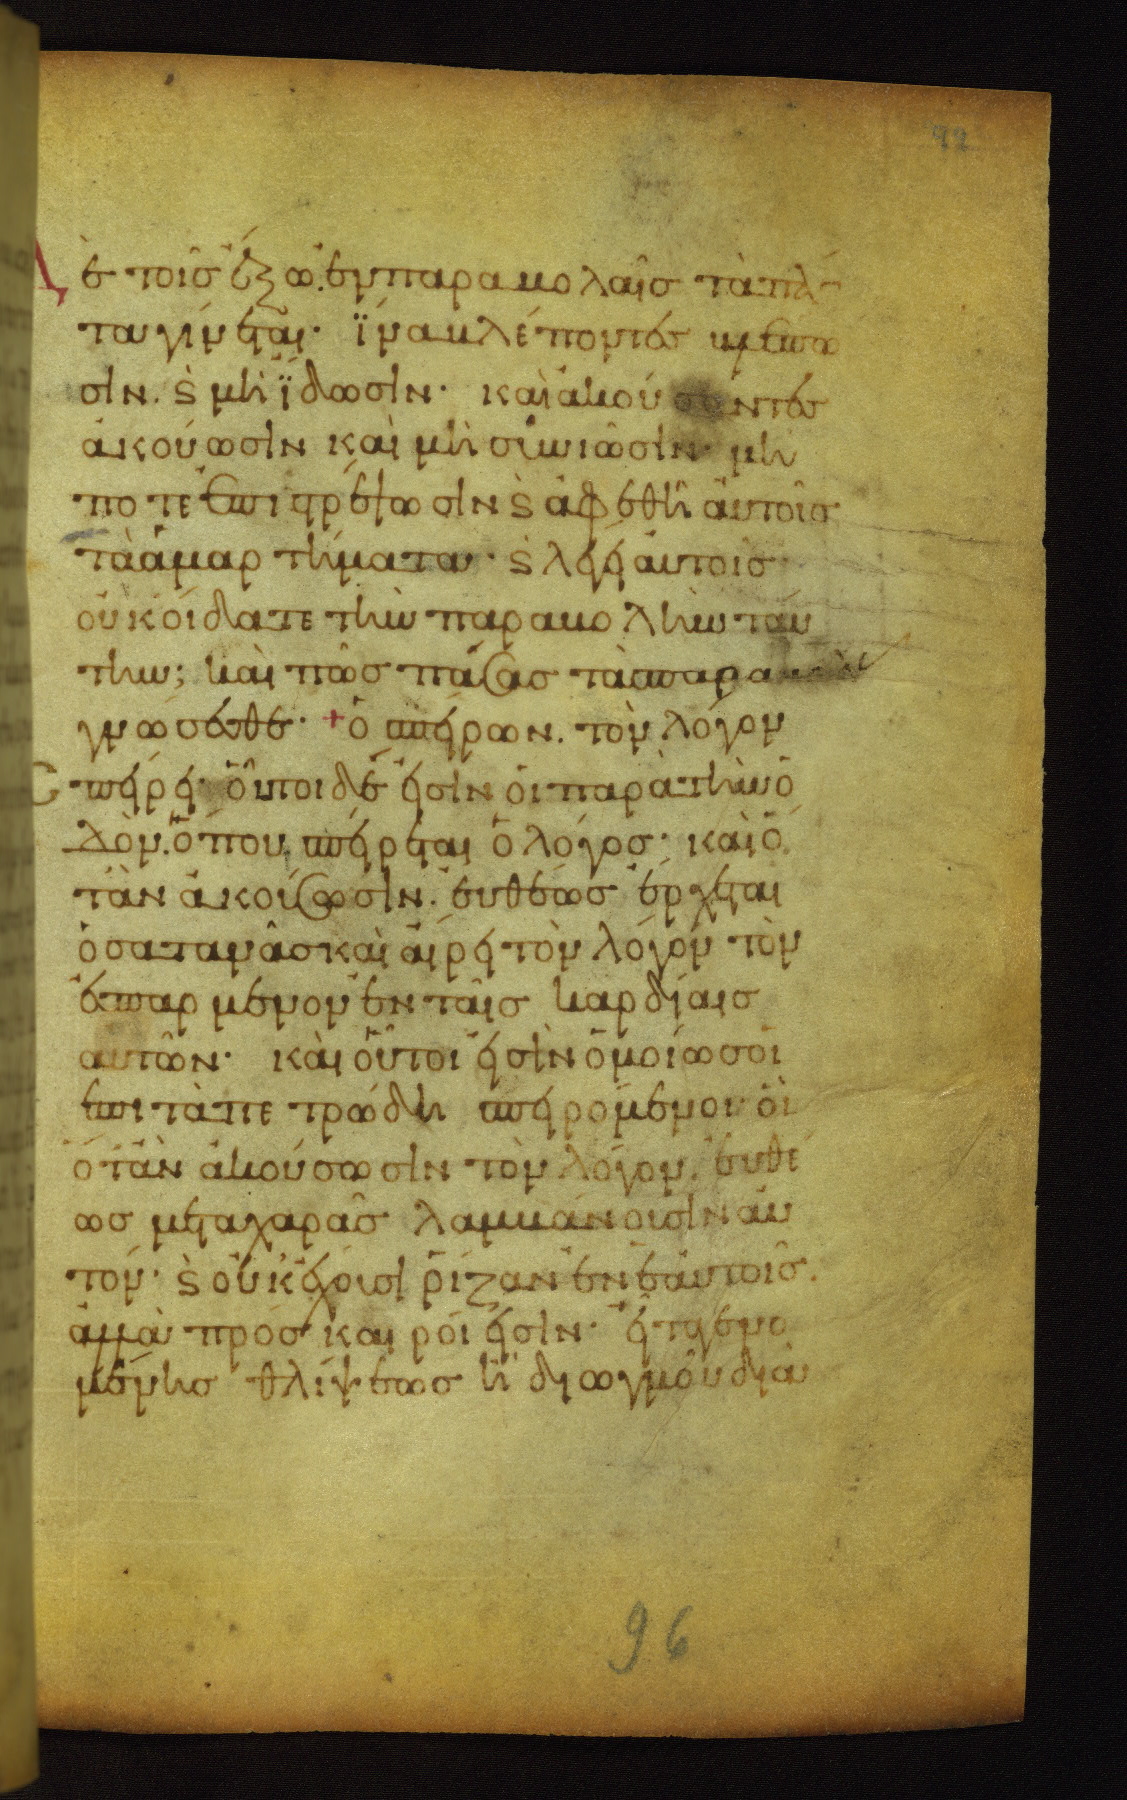 92
δὲ τοῖς ἔξω. ἐν παραβολαῖς τὰ πάν
τα γίνεται· ἵνα βλέποντες βλέπω
σιν. ϗ μὴ ἴδωσιν· καὶ ἀκούοντες
ἀκούωσιν καὶ μὴ συνιῶσιν· μή
ποτε ἐπιστρέψωσιν ϗ ἀφεθῆ αὐτοῖς
τὰ ἁμαρτήματα· ϗ λέγει αὐτοῖς
οὐκ οἴδατε τὴν παραβολὴν ταύ
την; καὶ πῶς πάσας τὰς παραβολὰς
γνώσεσθε· + ὁ σπείρων. τὸν λόγον
σπείρει· οὗτοι δέ εἰσιν οἱ παρὰ τὴν ὁ
δὸν. ὅπου σπείρεται ὁ λόγος· καὶ ὅ
τὰν ἀκούσωσιν. εὐθέως ἔρχεται
ὁ σατανᾶς καὶ αἴρει τὸν λόγον τὸν
ἐσπαρμένον ἐν ταῖς καρδίαις
αὐτῶν· καὶ οὗτοι εἰσὶν ὁμοίως οἱ
ἐπὶ τὰ πετρώδη σπειρόμενοι οἳ
ὅταν ἀκούσωσιν τὸν λόγον. εὐθέ
ως μετὰ χαρᾶς λαμβάνουσιν αὐ
τόν· ϗ οὐκ ἔχουσι ῥίζαν ἐν ἑαυτοῖς.
ἀλλὰ πρόσκαιροί εἰσιν· εἶτα γενο
μένης θλίψεως ἢ διωγμοῦ διὰ
96